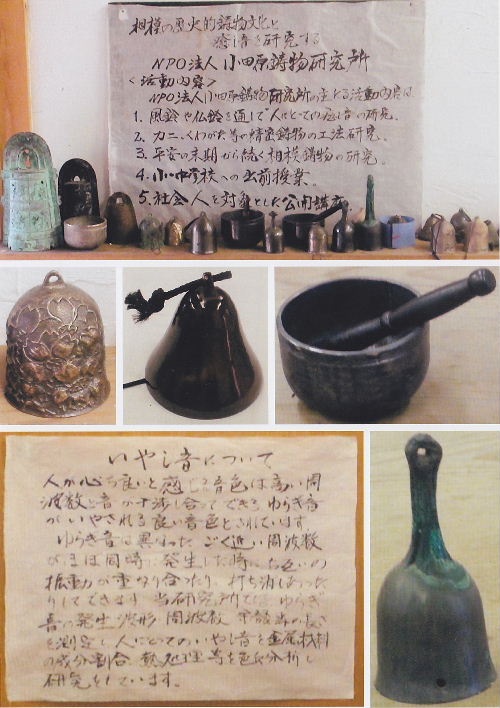 相模の歴史的鋳物文化と
癒し音を研究する
NPO法人 小田原鋳物研究所
<活動内容>
NPO法人小田原鋳物研究所の主たる活動内容は
1. 風鈴や仏鈴を通して人にとっての癒し音の研究。
2. カニ、くわがた等の精密鋳物の工法研究。
3. 平安の末期から続く相模鋳物の研究。
4. 小中学校への出前授業。
5. 社会人を対象とした公開講座。
いやし音について
人が心ち良いと感じる音色は高い周
波数と音が干渉し合ってできるゆらぎ音
がいやされる良い音色とされています。
ゆらぎ音は異なったごく近い周波数
がほぼ同時に発生した時にお互いの
振動が重なり合ったり、打ち消しあった
りしてできます。当研究所ではゆらぎ
音の発生波形 周波数 余韻等の長さ
を測定し人にとってのいやし音を金属材料
の成分割合、熱処理等を色々分析し
研究をしています。